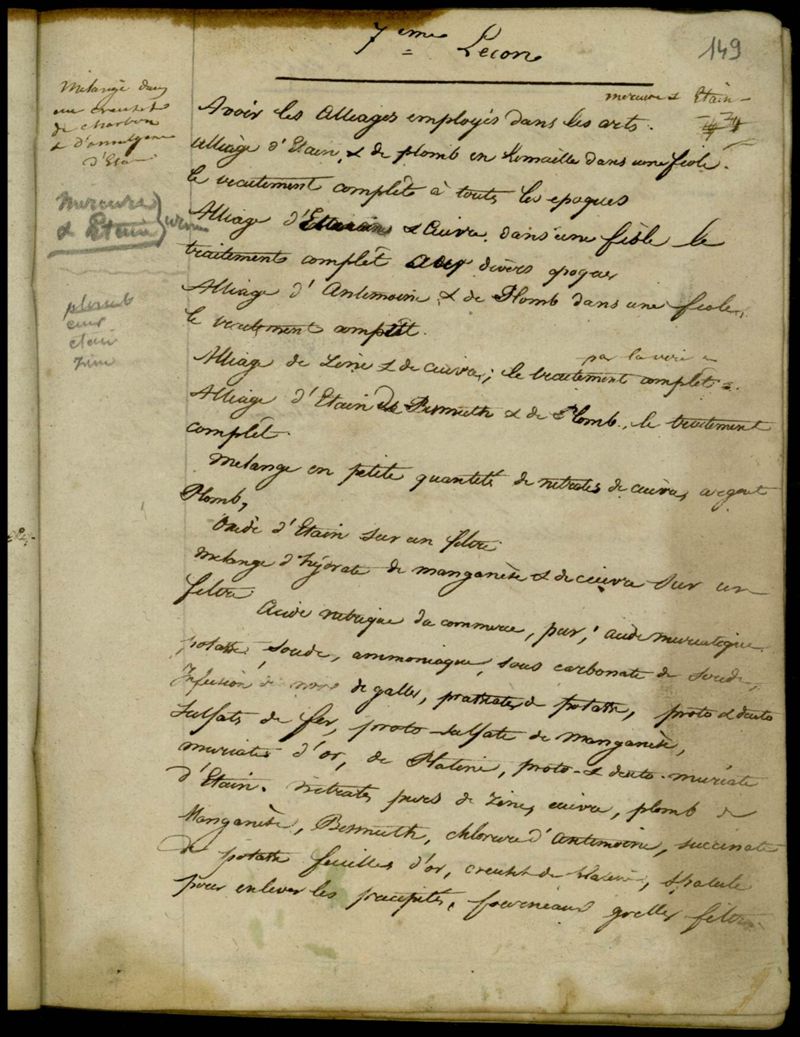 149
7eme Lecon
mercure & Etain
Mélange dans
un creuset
de charbon
& d'amalgame
d'Etain
Mercure
& Etain
plomb
cuiv
etain
zinc
Avoir les Alliages employés dans les arts.
Alliage d'Etain, & de plomb en limaille dans une fiole.
le traitement complèt à touts les epoques
Alliage d'Etain & Cuivre, dans une fiole le
traitements complèt aux divers epoques
Alliage d'Antimoine, & de Plomb dans une fiole,
le traitement complèt.
par la voie
Alliage de Zinc & de cuivre; le traitement complèt.
Alliage d'Etain de Bismuth & de Plomb, le traitement
complèt.
Melange en petite quantité de nitrates de cuivre, argent
Plomb,
Oxide d'Etain sur un filtre
Melange d'hydrate de manganèse & de cuivre sur un
filtre
Acide nitrique du commerce, pur, acide muriatique
potasse, soude, ammoniaque, sous carbonate de soude,
Infusion de noix de galles, prussiate de potasse, proto & deuto
Sulfate de fer, proto-sulfate de manganèse,
muriates d'or, de Platine, proto-& deuto-muriate
d'Etain. Nitrates purs de Zinc, cuivre, plomb de
Manganèse, Bismuth, chlorure d'Antimoine, succinate
de potasse feuilles d'or, creuset de Platine, spatule
pour enlever les precipités, fourneaux grilles filtre